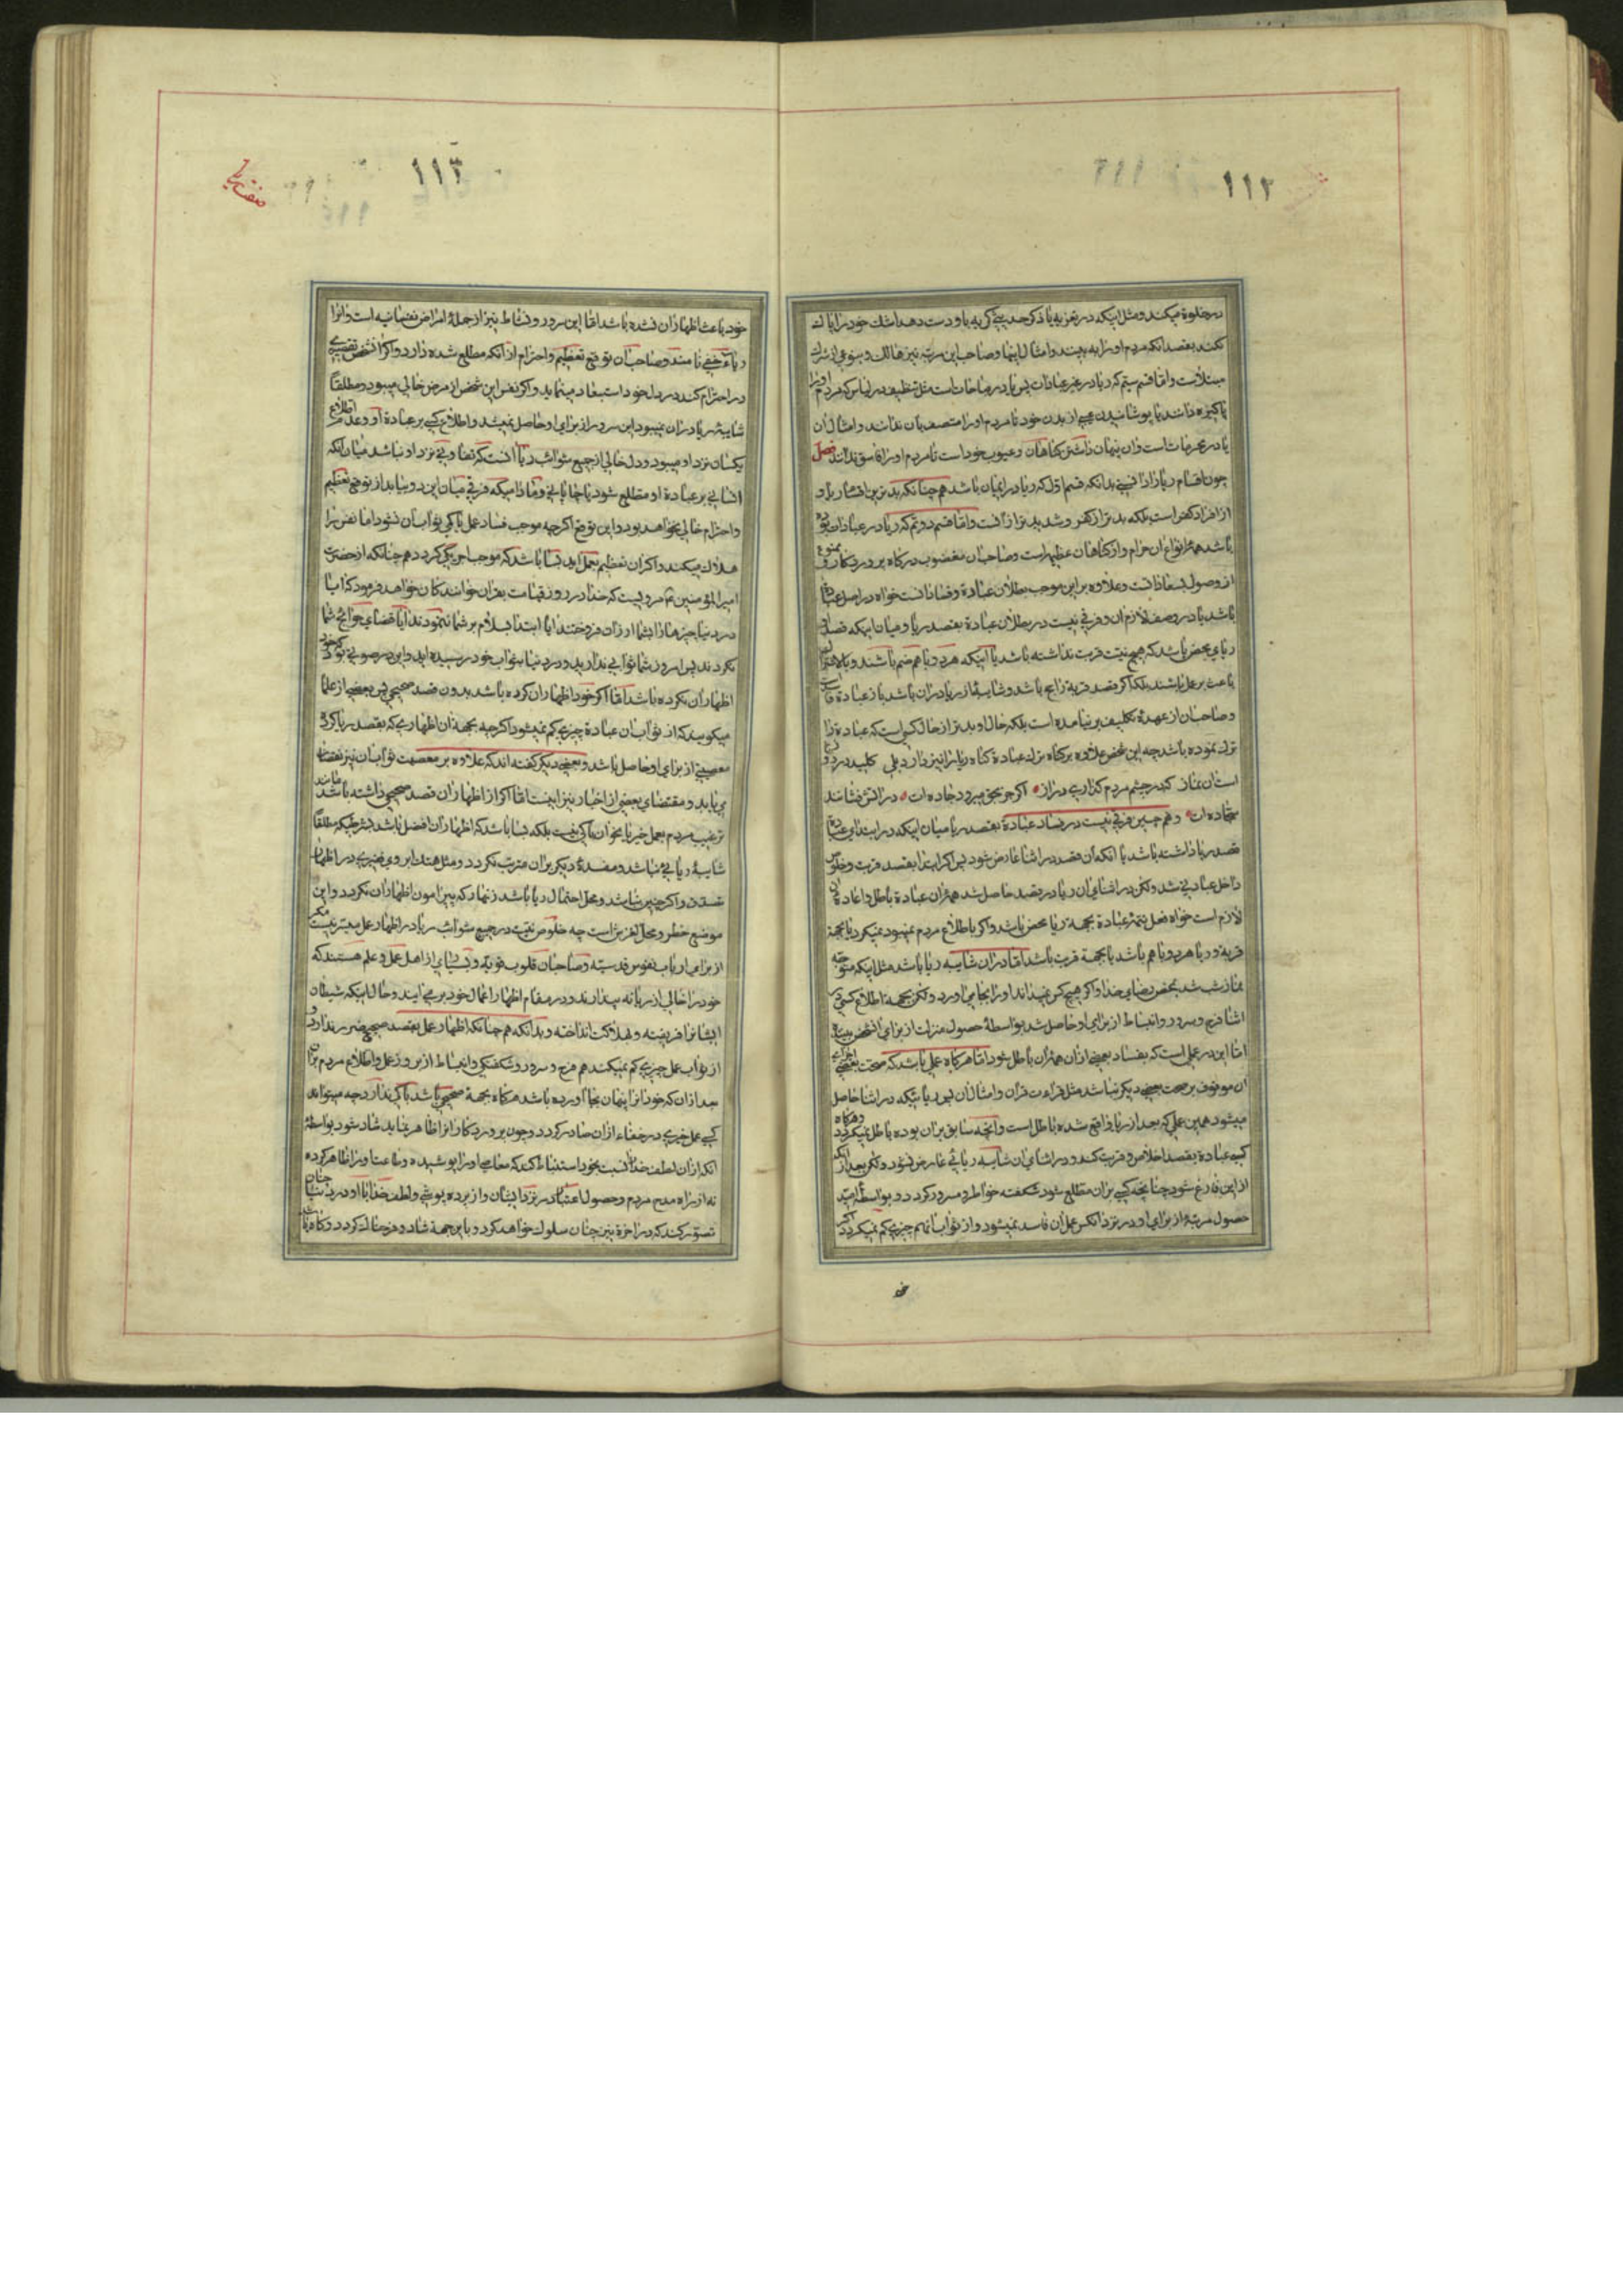 ١١٢
در خلوة میکند و مثل اینکه در تعزیه یا ذکر حدیثی گریه باو دست دهد اشک خود را پاک
نکند بقصد آنکه مردم او را به بینند و امثال اینها و صاحب این مرتبه نیز هالک و بنوعی از شرک
مبتلاست و اما قسم سیّم که ریا در غیر عبادات پس یا در مباحات است مثل تنظیف در لباس که مردم او را
پاکیزه دانند یا پوشانیدن عیبی از بدن خود تا مردم او را متصف بآن ندانند و امثال آن
یا در محرمات است و آن پنهان داشتن گناهان و عیوب خود است تا مردم او را فاسق ندانند فصل
چون اقسام ریا را دانستی بدانکه قسم اوّل که ریا در ایمان باشد همچنانکه بدترین اقسام ریا و
از افراد کفر است بلکه بدتر از کفر و شدیدتر از آنست و اما قسم دوّم که ریا در عبادات بوده
باشد همۀ انواع آن حرام و از گناهان عظیمه است و صاحبان مغضوب درگاه پروردگار و ممنوع
از وصول بسعاداتست و علاوه بر این موجب بطلان عبادة و فساد آنست خواه در اصل عبادة
باشد یا در وصف لازم آن و فرقی نیست در بطلان عبادة بقصد ریا و میان اینکه قصد او
ریای محض باشد که هیچ نیّت قربت نداشته باشد یا اینکه هر دو با هم ضم باشند و با هم
باعث بر عمل باشند بلکه اگر قصد قربة راجح باشد و شایبۀ از ریا در آن باشد باز عبادة فاسد
و صاحبان از عهدۀ تکلیف بر نیامده است بلکه حال او بدتر از حال کسی است که عبادة را
ترک نموده باشد چه این شخص علاوه بر گناه ترک عبادة گناه ریا را نیز دارد بلی کلید در دوزخ
است آن نماز که در چشم مردم گذاری دراز اگر جز بحق میرود جاده ات در آتش نشانند
سجّاده ات و همچنین فرقی نیست در فساد عبادة بقصد ریا میان اینکه در ابتدای عبادة
قصد ریا داشته باشد یا آنکه آن قصد در اثنا عارض شود پس اگر ابتدا بقصد قربت و خلوص
داخل عبادتی شد ولکن در اثنای آن ریا در قصد حاصل شد همۀ آن عبادة باطل و اعادۀ آن
لازم است خواه فعل تتمۀ عبادة بجهة ریا محض باشد و اگر باطلاع مردم نمیبود نمیکرد یا بجهة
قربة و ریا هر دو با هم باشد یا بجهة قربت باشد اما در آن شایبه ریا باشد مثل اینکه متوجه
نماز شب شد بمحض رضای خدا و اگر هیچکس نمیداند او را بجا میآورد ولکن بجهة اطلاع کسی در
اثنا فرح و سرور و انبساط از برای او حاصل شد بواسطۀ حصول منزلت از برای آن شخص
اما این در عملی است که بفساد بعضی از آن همۀ آن باطل شود اما هر گاه عملی باشد که صحت بعضی اجزای
آن موقوف بر صحت بعضی دیگر نباشد مثل قراءت قرآن و امثال آن پس ریائیکه در اثنا حاصل
میشود همین عملی که بعد از ریا واقع شده باطل است و آنچه سابق بر آن بوده باطل نمیگردد و هرگاه
کسی عبادة بقصد اخلاص و قربت کند و در اثنای آن شایبه ریائی عارض نشود ولکن بعد از آنکه
از این فارغ شود چنانچه کسی بر آن مطلع شود شکفته خواطر و مسرور گردد و بواسطۀ امید
حصول مرتبۀ از برای او در نزد آنکس عمل آن فاسد نمیشود و از ثواب آنهم چیزی کم نمیگردد اگر
خو
١١٣
خود باعث اظهار آن نشده باشد امّا این سرور و نشاط نیز از جملۀ امراض نفسانیه است و آنرا
ریاء خفی نامند و صاحبان توقع تعظیم و احترام از آنکه مطلع شده دارد و اگر آن شخص تقصیری
در احترام کند در دل خود استبعاد مینماید و اگر نفس این شخص از مرض خالی میبود و مطلقاً
شایبۀ ریا در آن نمیبود این سرور از برای او حاصل نمیشد و اطلاع کسی بر عبادة او و عدم اطلاع
یکسان نزد او میبود و دل خالی از جمیع شوائب ریا آنست که تفاوتی نزد او نباشد میان آنکه
انسانی بر عبادة او مطلع شود یا چارپایی و مادامیکه فرقی میان این دو بیابد از توقع تعظیم
و احترام خالی نخواهد بود و این توقع اگر چه موجب فساد عمل یا کمی ثواب آن نشود اما نفس را
هلاک میکند و اگر آن تعظیم بعمل آید بسا باشد که موجب اجر کم گردد همچنانکه از حضرت
امیر المؤمنین ع مرویست که خدا در روز قیامت بقرآن خوانندگان خواهد فرمود که آیا
در دنیا چیزها را بشما ارزان نفروختند آیا ابتدا بسلام بر شما نمینمودند آیا قضای حوائج شما
نکردند پس امروز شما ثوابی ندارید و در دنیا بثواب خود رسیده اید و این در صورتی بود که خود
اظهار آن نکرده باشد اما اگر خود اظهار آن کرده باشد بدون قصد صحیحی پس بعضی از علما
میگویند که از ثواب آن عبادة چیزی کم نمیشود اگر چه بجهة آن اظهاری که بقصد ریا کرده
معصیتی از برای او حاصل باشد و بعضی دیگر گفته اند که علاوه بر معصیت ثواب آن نیز نقصان
می یابد و مقتضای بعضی از اخبار نیز اینست اما اگر از اظهار آن قصد صحیحی داشته باشد مانند
ترغیب مردم بعمل خیر یا نحو آن باکی نیست بلکه بسا باشد که اظهار آن افضل باشد بشرطیکه مطلقاً
شایبۀ ریائی نباشد و مفسدۀ دیگر بر آن مترتب نگردد و مثل هتک ابروی فقیری در اظهار
تصدق و اگر چنین نباشد و محل احتمال ریا باشد زنهار که پیرامون اظهار آن نگردد و این
موضع خطر و محل لغزش است چه خلوص نیت در جمیع شوائب ریا در اظهار عمل میسّر نیست مگر
از برای ارباب نفوس قدسیّه و صاحبان قلوب قویّه و بسیاری از اهل عمل و علم هستند که
خود را خالی از ریا نه پندارند و در مقام اظهار اعمال خود بر می آیند و حال اینکه شیطان
ایشان را فریفته و بهلاکت انداخته و بدانکه همچنانکه اظهار عمل بقصد صحیح ضرر ندارد و
از ثواب عمل چیزی کم نمیکند هم فرح و سرور و شکفتگی و انبساط از بروز عمل و اطلاع مردم بر آن
بعد از آن که خود آنرا پنهان بجا آورده باشد هرگاه بجهة صحیحی باشد باکی ندارد چه میتواند
کسی عمل خیری در خفاء از آن صادر گردد و چون پروردگار آنرا ظاهر نماید شاد شود بواسطۀ
آنکه از آن لطف خدا را نسبت بخود استنباط کند که معاصی او را پوشیده و طاعت او را ظاهر کرده
نه از راه مدح مردم و حصول اعتبار در نزد ایشان و از پرده پوشی و لطف خدا با او در دنیا چنان
تصوّر کند که در آخرة نیز چنان سلوک خواهد کرد و باین جهة شاد و فرحناک گردد و گاه